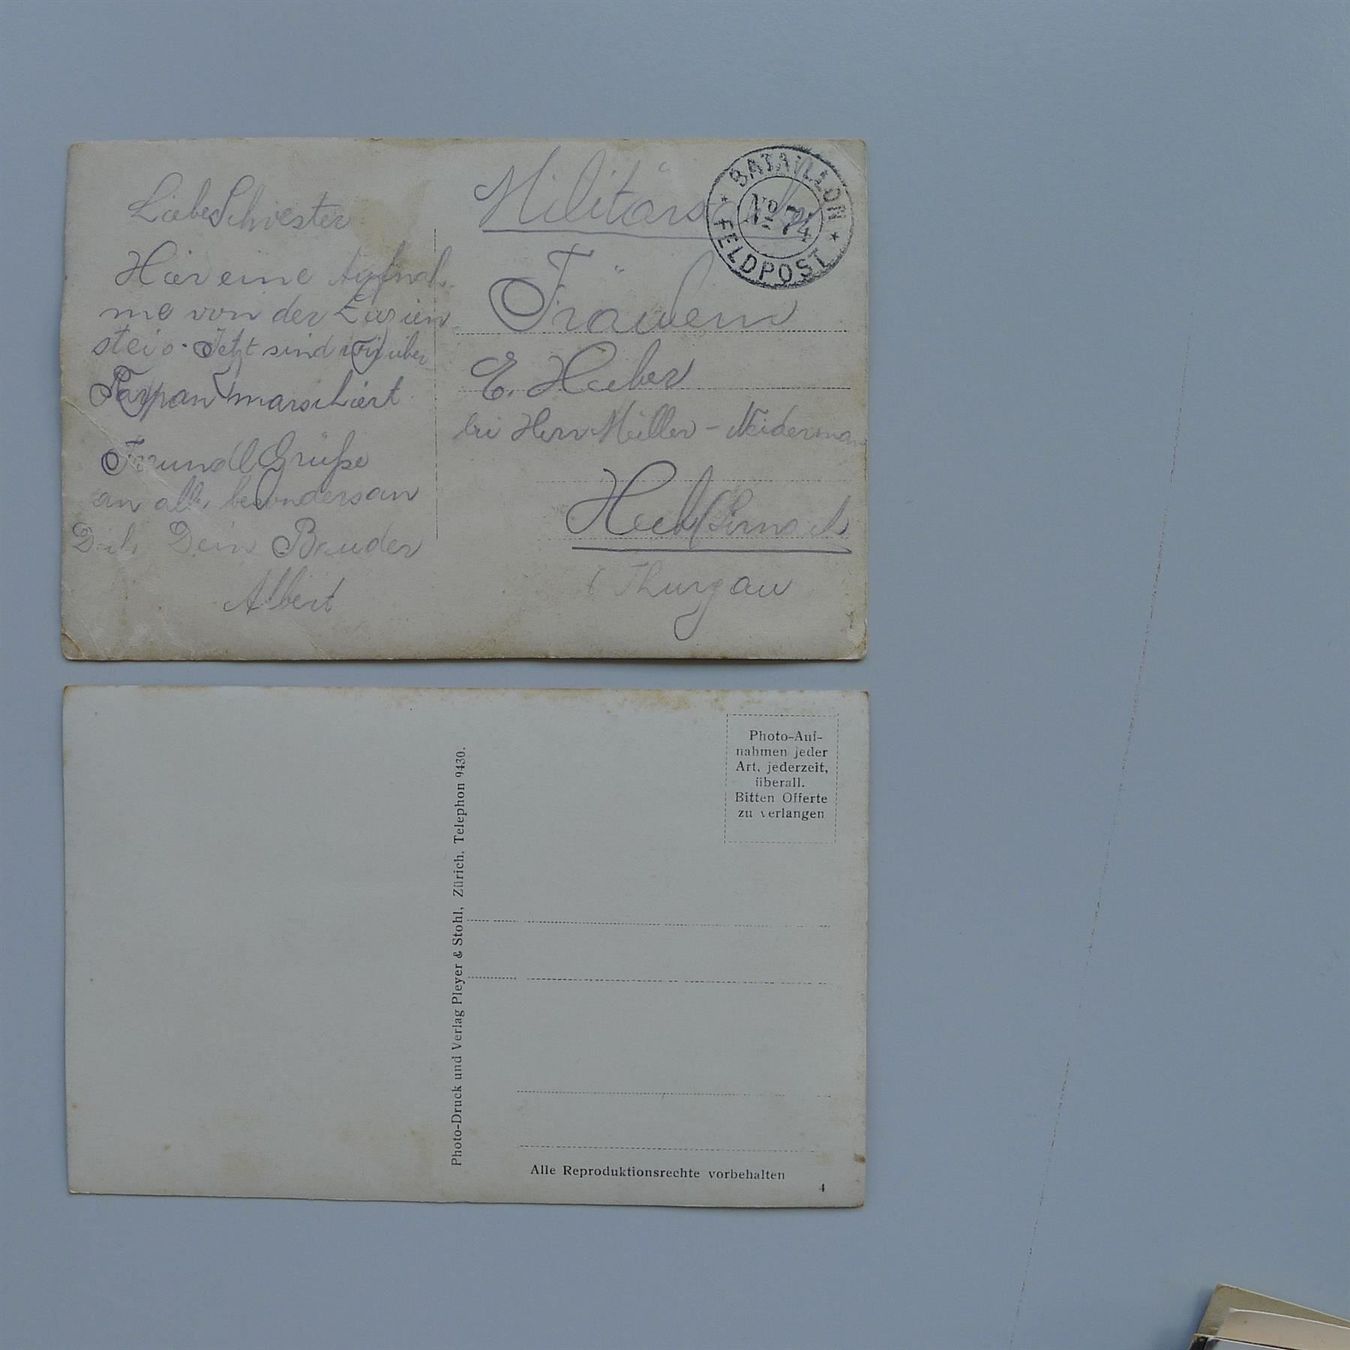 Liebe Schwester
Hier eine Aufnah-
me von der Luzien-
steig. Jetzt sind wir über
marschiert.
Freundl Grüße
an alle besonders an
Dich Dein Bruder
Albert
Militärs
BATAILLON
No 74
FELDPOST
Fräulein
E. Huber
bei Herrn Müller - Neiderman
(Thurgau
Photo-Auf-
nahmen jeder
Art, jederzeit,
überall.
Bitten Offerte
zu verlangen
Photo-Druck und Verlag Pleyer & Stohl, Zürich, Telephon 9430.
Alle Reproduktionsrechte vorbehalten
4